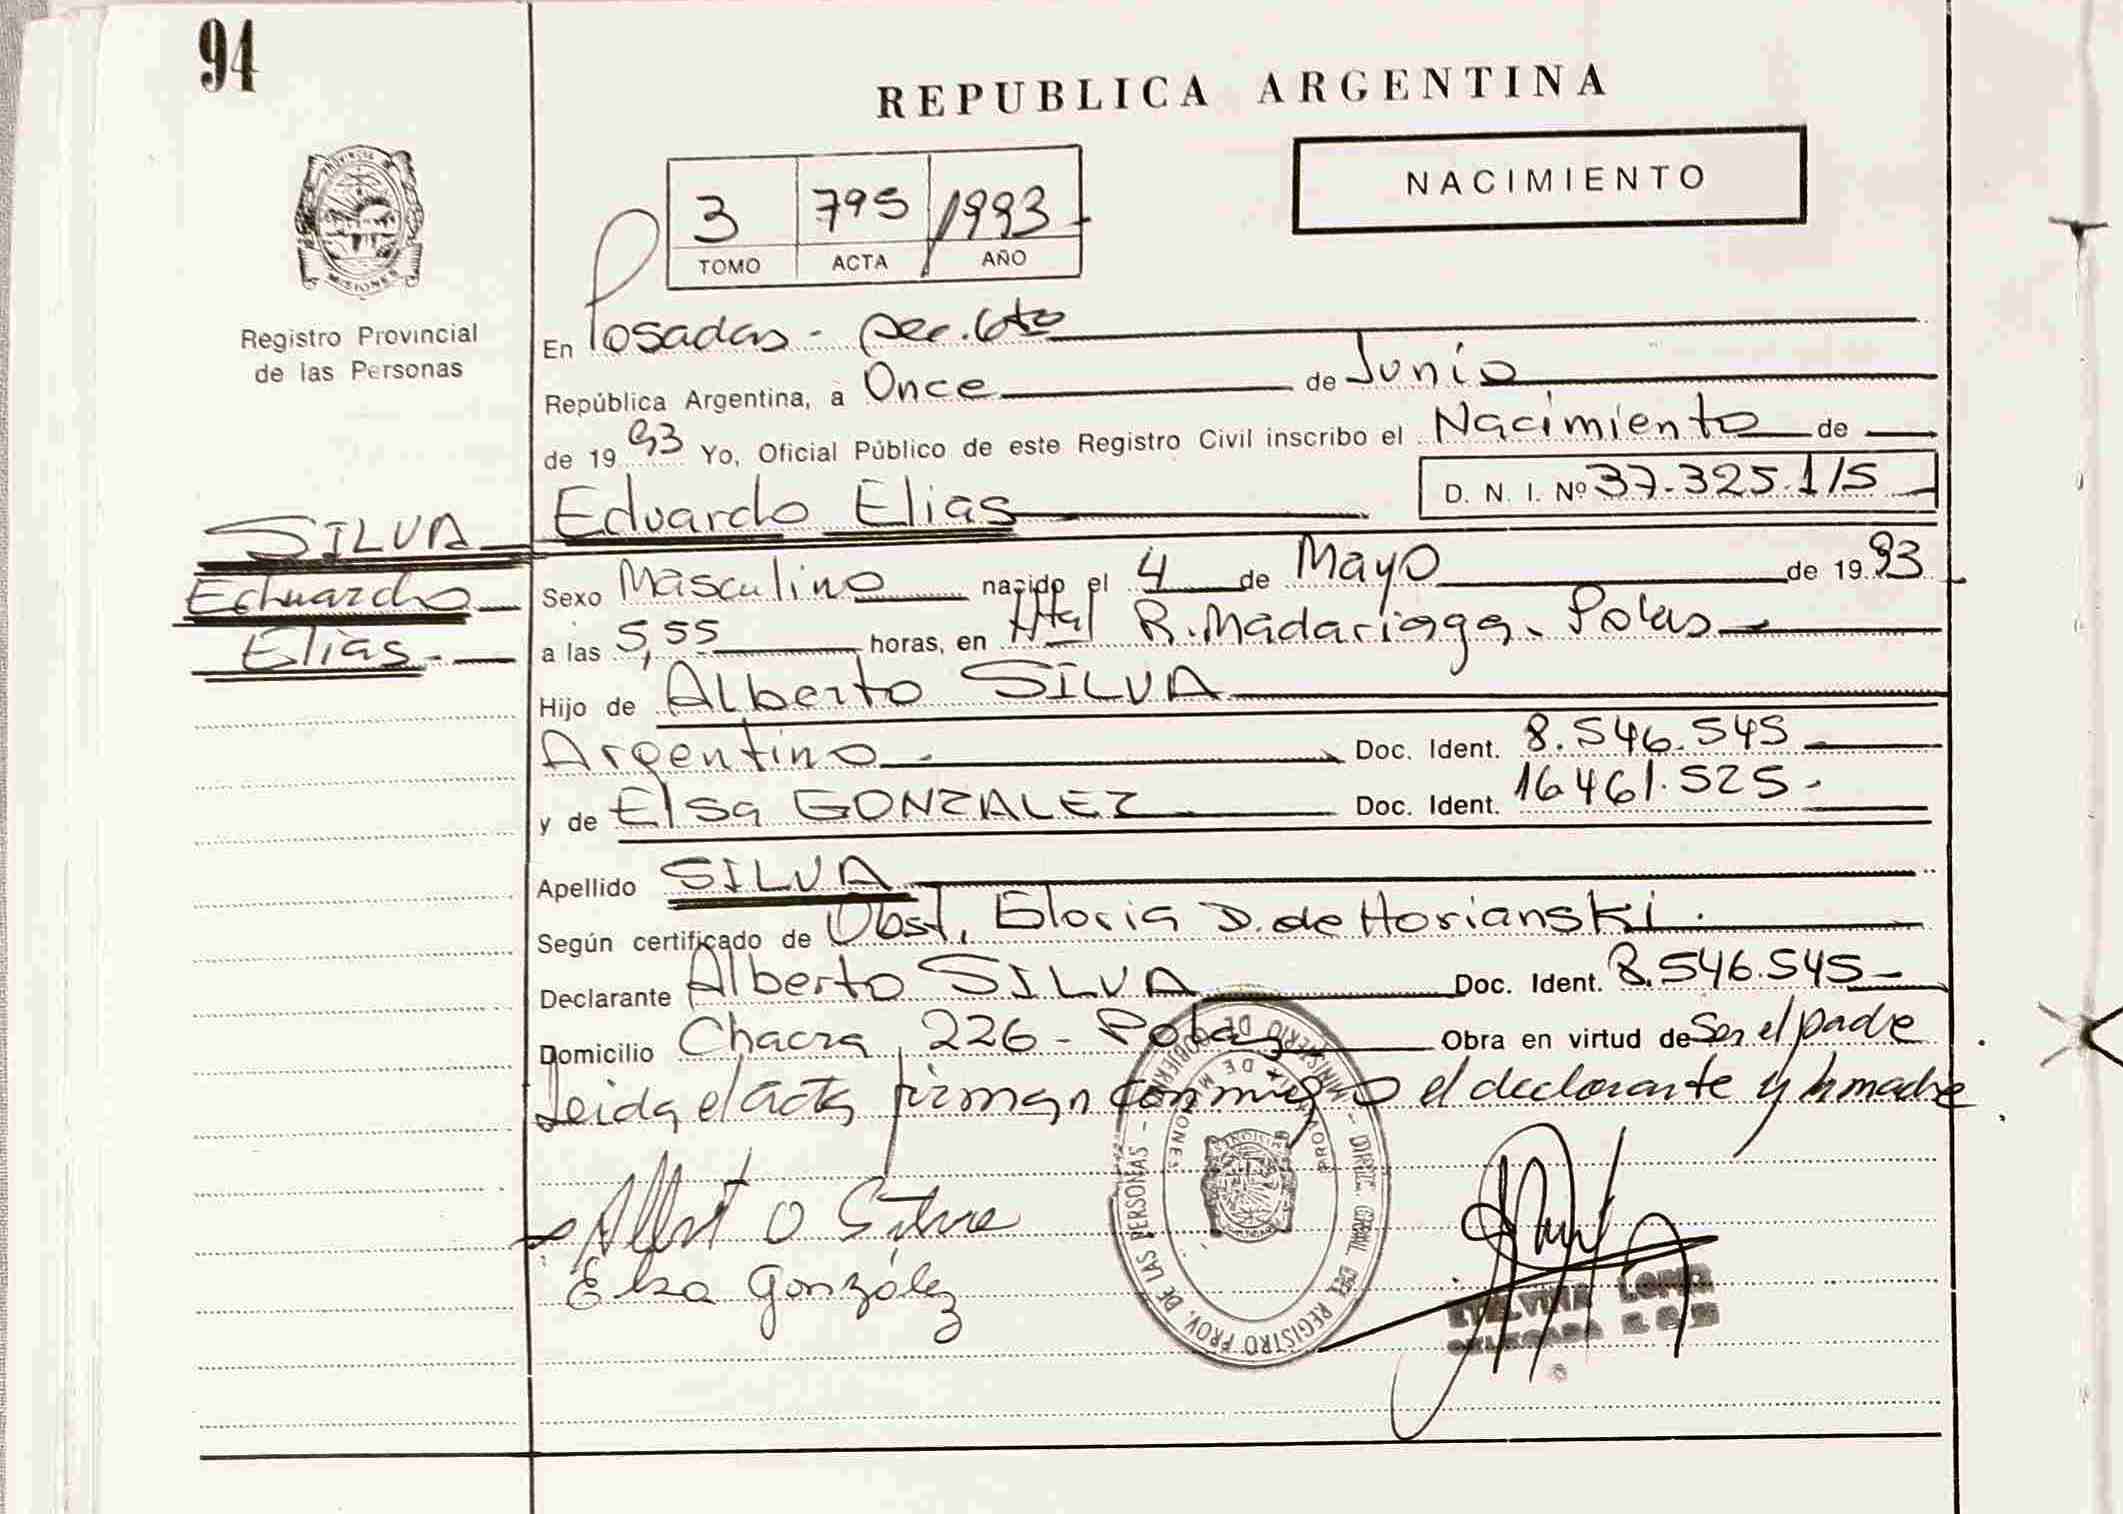 94
REPUBLICA ARGENTINA
NACIMIENTO
3 795 1993
TOMO ACTA AÑO
PROVINCIA DE MISIONES
Registro Provincial
de las Personas
En Posadas - Sec. 6ta
República Argentina, a Once de Junio
de 1993 Yo, Oficial Público de este Registro Civil inscribo el Nacimiento de
D. N. I. Nº 37.325.115
SILVA Eduardo Elias
Eduardo
Elias.-
Sexo Masculino nacido el 4 de Mayo de 1993
a las 5,55 horas, en Htal R. Madariaga. Pdas
Hijo de Alberto SILVA
Argentino.- Doc. Ident. 8.546.545
y de Elsa GONZALEZ Doc. Ident. 16.461.525.-
Apellido SILVA
Según certificado de Obst. Gloria D. de Horianski.
Declarante Alberto SILVA Doc. Ident. 8.546.545
Domicilio Chacra 226 - Pdas Obra en virtud de Ser el padre
Leida el acta firman conmigo el declarante y la madre
Alberto Silva
Elsa González
MINISTERIO DE GOBIERNO - DIREC. GRAL. DEL REGISTRO PROV. DE LAS PERSONAS -
PROVINCIA DE MISIONES
ETELVINA LOPEZ
DELEGADA